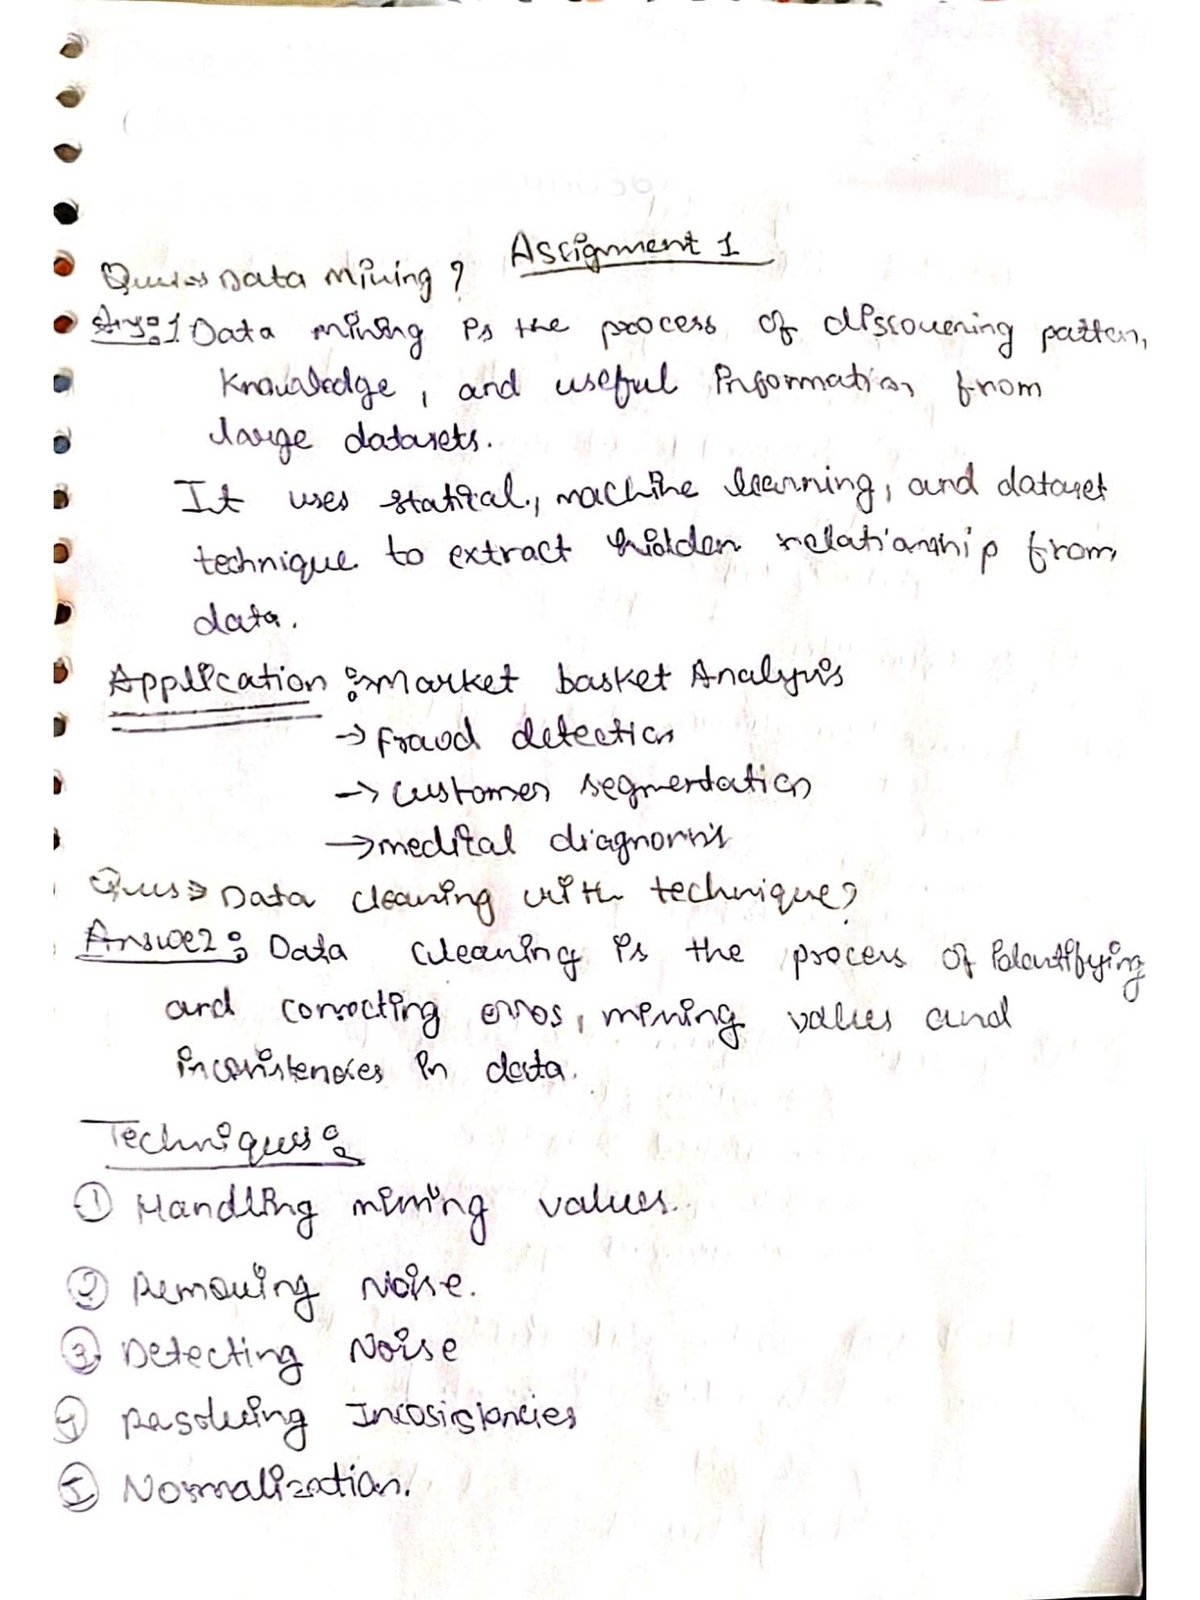 Assignment 1
Ques→ Data Mining ?
Ans:1 Data mining is the process of discovering pattern,
Knowledge, and useful information from
large datasets.
It uses statical, machine learning, and dataset
technique to extract hidden relationship from
data.
Application : Market basket Analysis
→ Fraud detection
→ customer segmentation
→ medical diagnosis
Ques⇒ Data cleaning with technique?
Answe2: Data cleaning is the process of identifying
and correcting erros, missing values and
inconsistencies in data.
Techniques:
① Handling missing values.
② Removing Noise.
③ Detecting Noise
④ Resolving Incosistancies
⑤ Normalization.